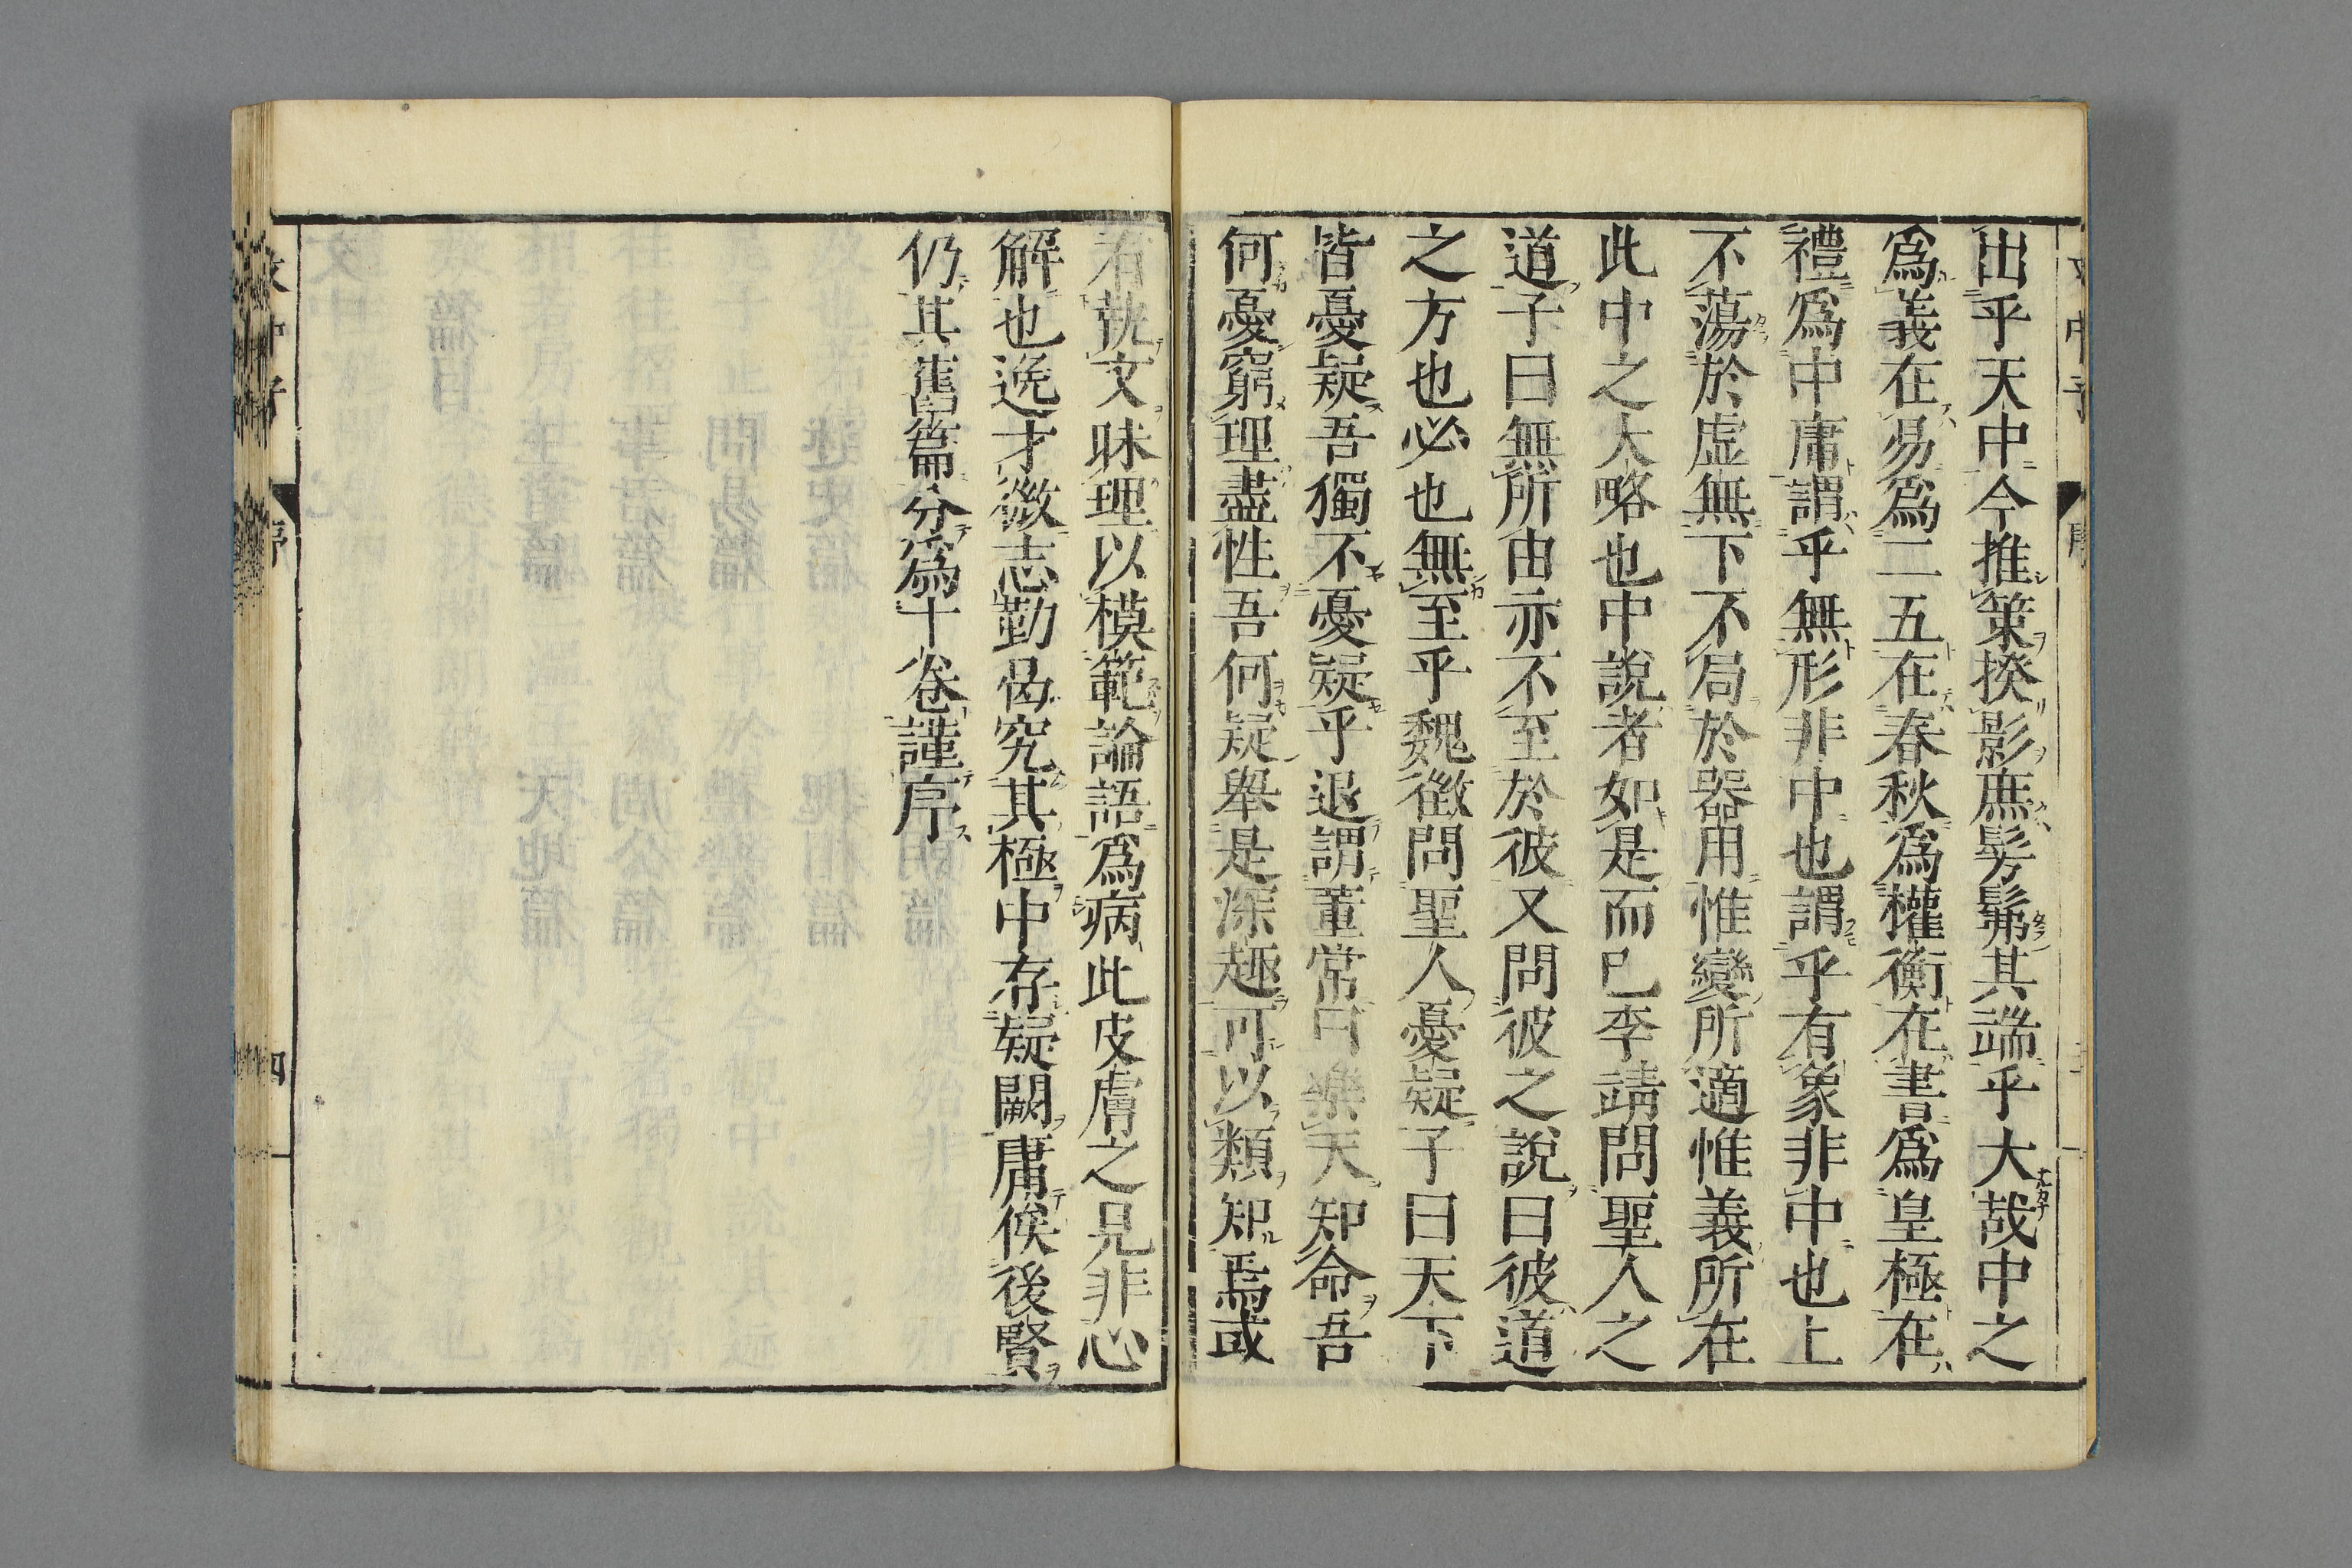 出乎天中今推策揆影庶髣髴其端乎大哉中之
爲義在易爲二五在春秋爲權衡在書爲皇極在
禮爲中庸謂乎無形非中也謂乎有象非中也上
不蕩於虚無下不局於器用惟變所適惟義所在
此中之大略也中說者如是而已李靖問聖人之
道子曰無所由亦不至於彼又問彼之說曰彼道
之方也必也無至乎魏徵問聖人憂疑子曰天下
皆憂疑吾獨不憂疑乎退謂董常曰樂天知命吾
何憂窮理盡性吾何疑舉是深趣可以類知焉或
有執文昧理以模範論語爲病此皮膚之見非心
解也逸才微志勤曷究其極中存疑闕庸俟後賢
仍其舊篇分爲十卷謹序
序
四